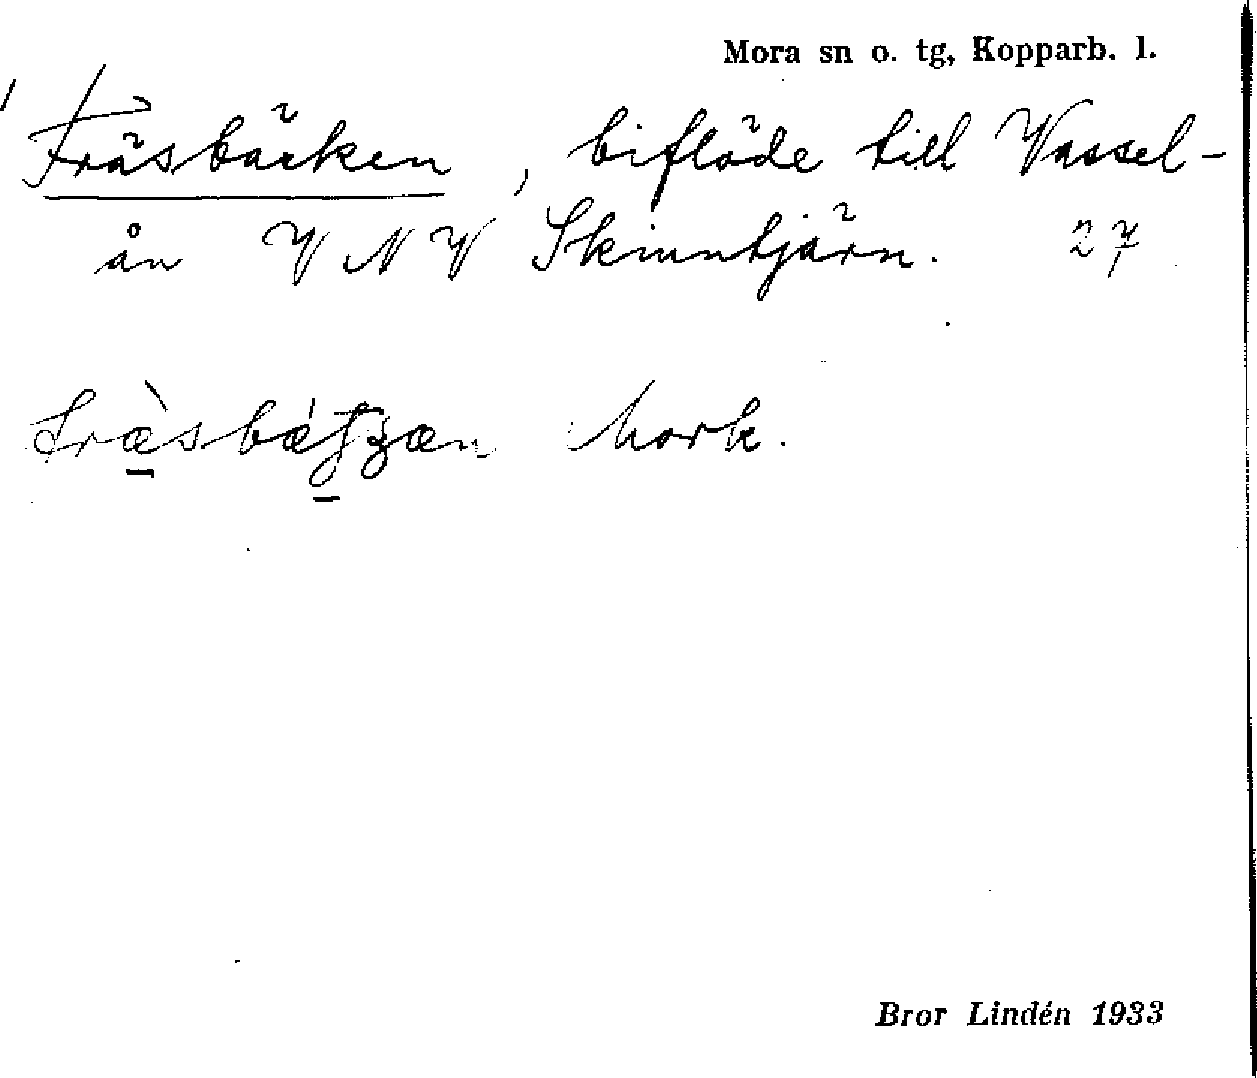 Mora sn o. tg, Kopparb. l.
Fräsbäcken, biflöde till Vassel-
ån VNV Skinntjärn. 27
Mork.
Bror Lindén 1933